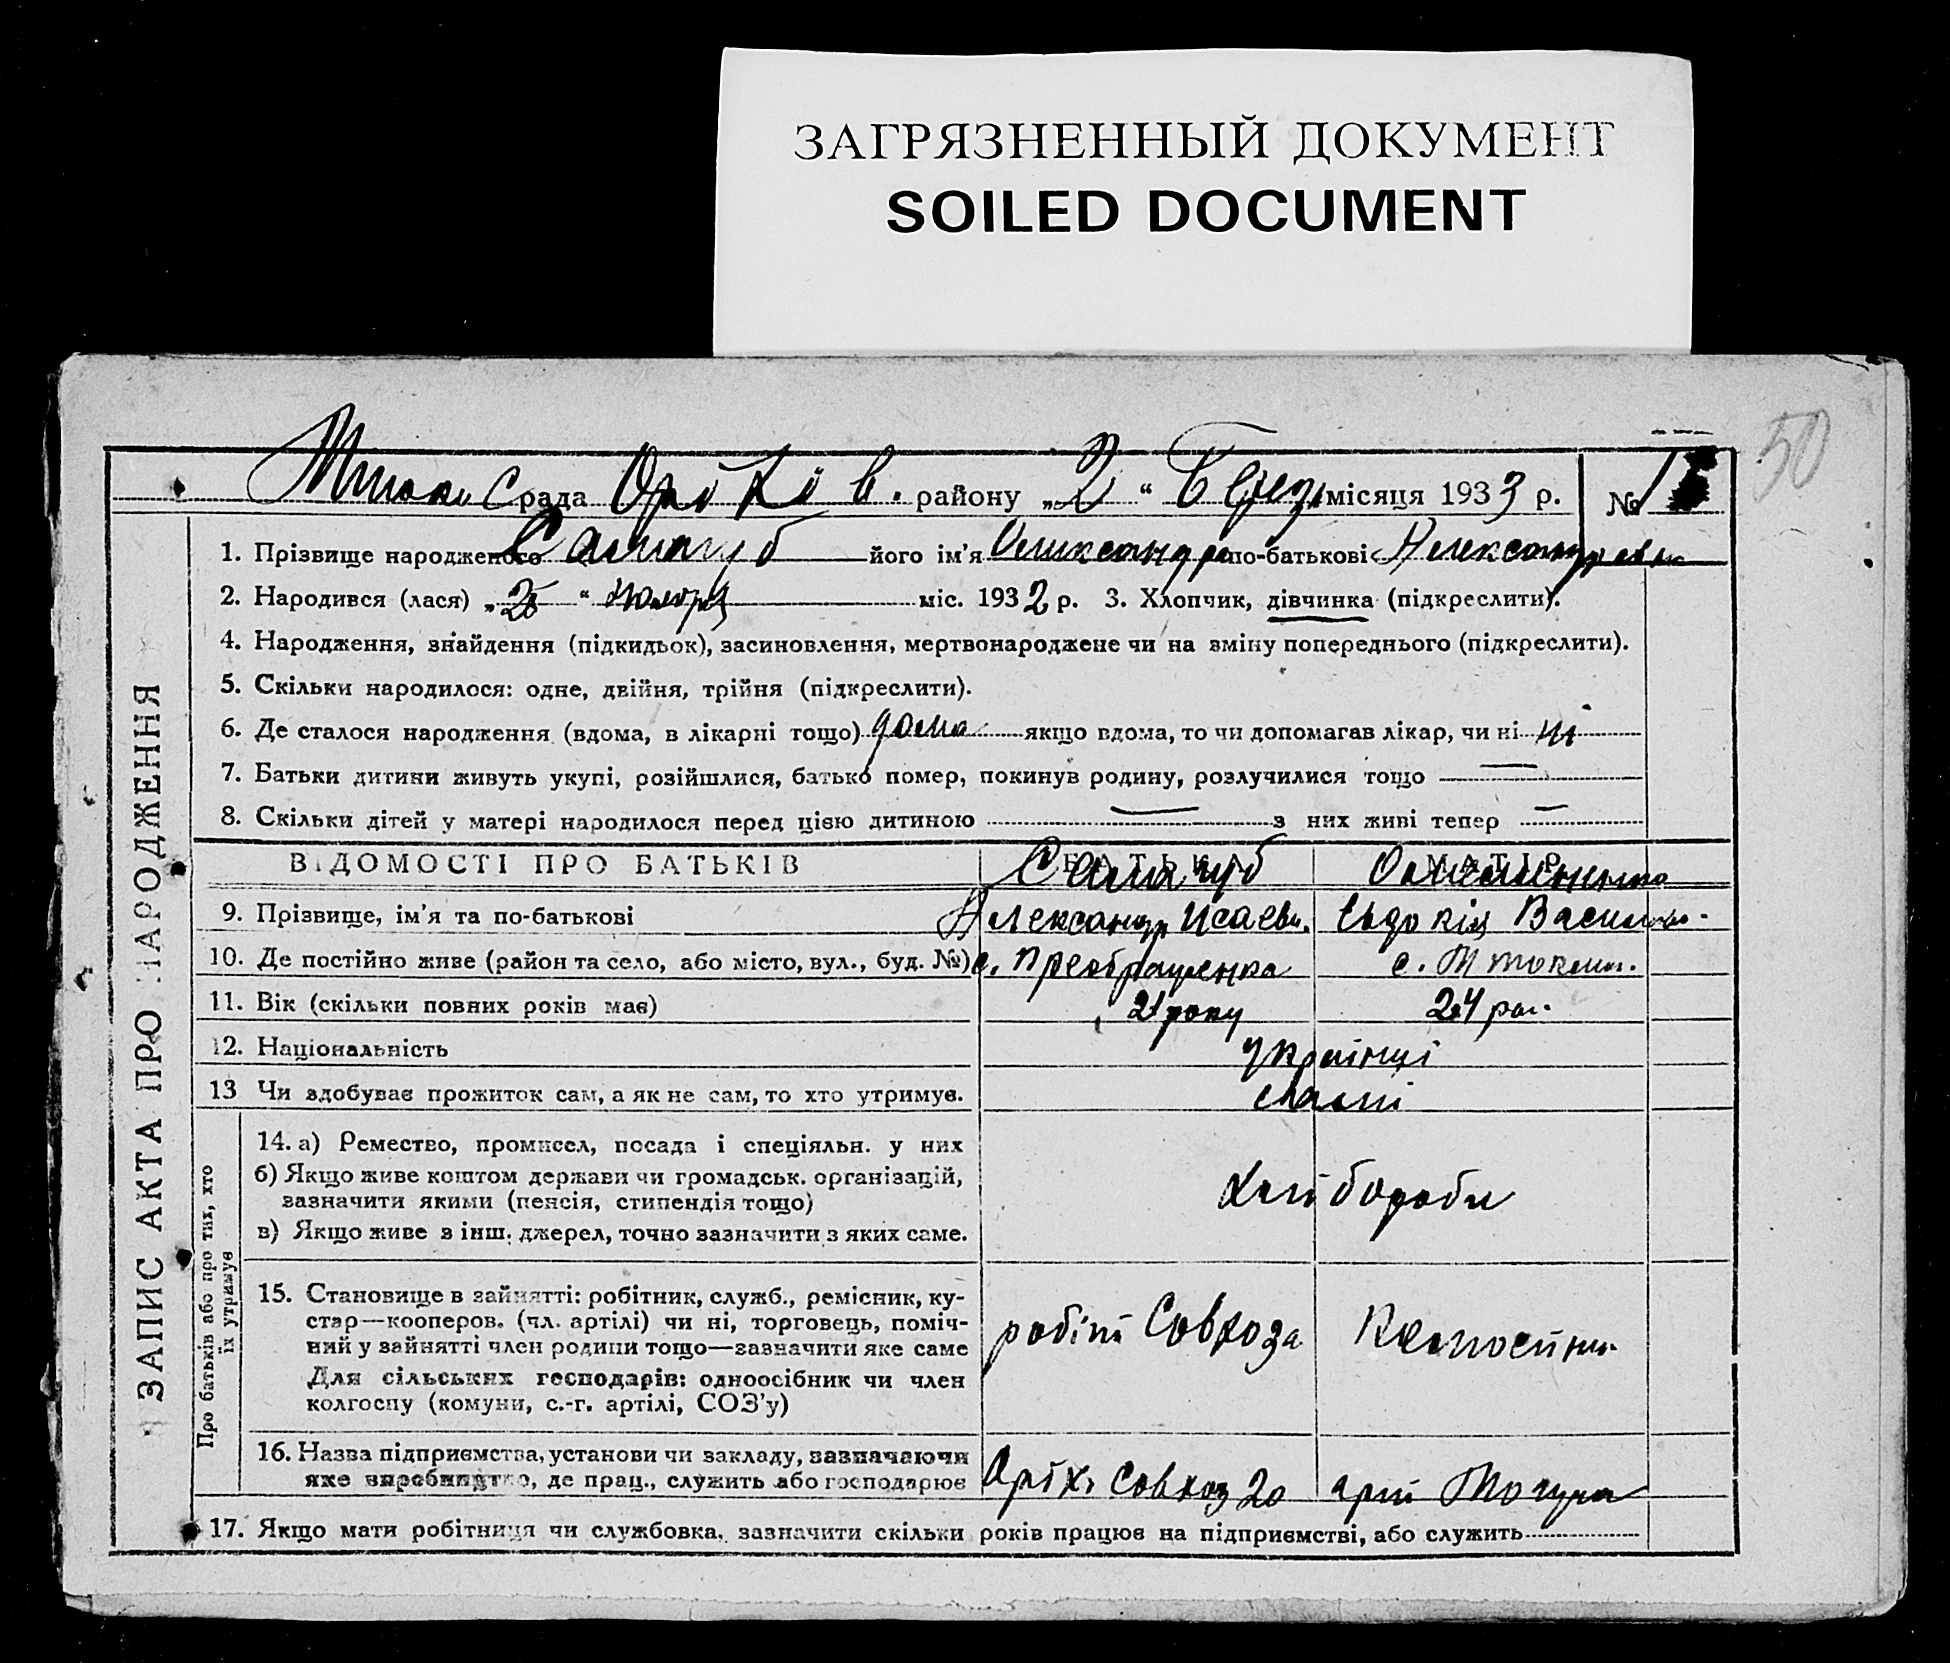 ЗАГРЯЗНЕННЫЙ ДОКУМЕНТ
SOILED DOCUMENT
50
рада Оріхів. району „2“ Берез. місяця 1933 р. № 1
1. Прізвище народженого Самагуб його ім'я Олександра по-батькові Александровна
2. Народився (лася) „ “ міс. 1932 р. 3. Хлопчик, дівчинка (підкреслити).
4. Народження, знайдення (підкидьок), засиновлення, мертвонароджене чи на зміну попереднього (підкреслити).
5. Скільки народилося: одне, двійня, трійня (підкреслити).
6. Де сталося народження (вдома, в лікарні тощо) дома якщо вдома, то чи допомагав лікар, чи ні ні
7. Батьки дитини живуть укупі, розійшлися, батько помер, покинув родину, розлучилися тощо —
8. Скільки дітей у матері народилося перед цією дитиною — з них живі тепер —
ЗАПИС АКТА ПРО НАРОДЖЕННЯ
ВІДОМОСТІ ПРО БАТЬКІВ БАТЬКА Самагуб МАТІР
9. Прізвище, ім'я та по-батькові Александр Исаев. Евдокія Васильев.
10. Де постійно живе (район та село, або місто, вул., буд. №) с. Преображенка с.
11. Вік (скільки повних років має) 21 року 24 рок.
12. Національність українці
13 Чи здобуває прожиток сам, а як не сам, то хто утримує. самі
Про батьків або про тих, хто
їх утримує
14. а) Ремество, промисел, посада і спеціяльн. у них
б) Якщо живе коштом держави чи громадськ. організацій,
зазначити якими (пенсія, стипендія тощо)
в) Якщо живе з інш. джерел, точно зазначити з яких саме.
хліббороби
15. Становище в зайнятті: робітник, служб., ремісник, ку-
стар—кооперов. (чл. артілі) чи ні, торговець, поміч-
ний у зайнятті член родини тощо—зазначити яке саме
Для сільських господарів: одноосібник чи член
колгоспу (комуни, с.-г. артілі, СОЗ'у)
робіт Совхоза
16. Назва підприємства, установи чи закладу, зазначаючи
яке виробництво, де прац., служить або господарює
Оріхі Совхоз 20
17. Якщо мати робітниця чи службовка, зазначити скільки років працює на підприємстві, або служить